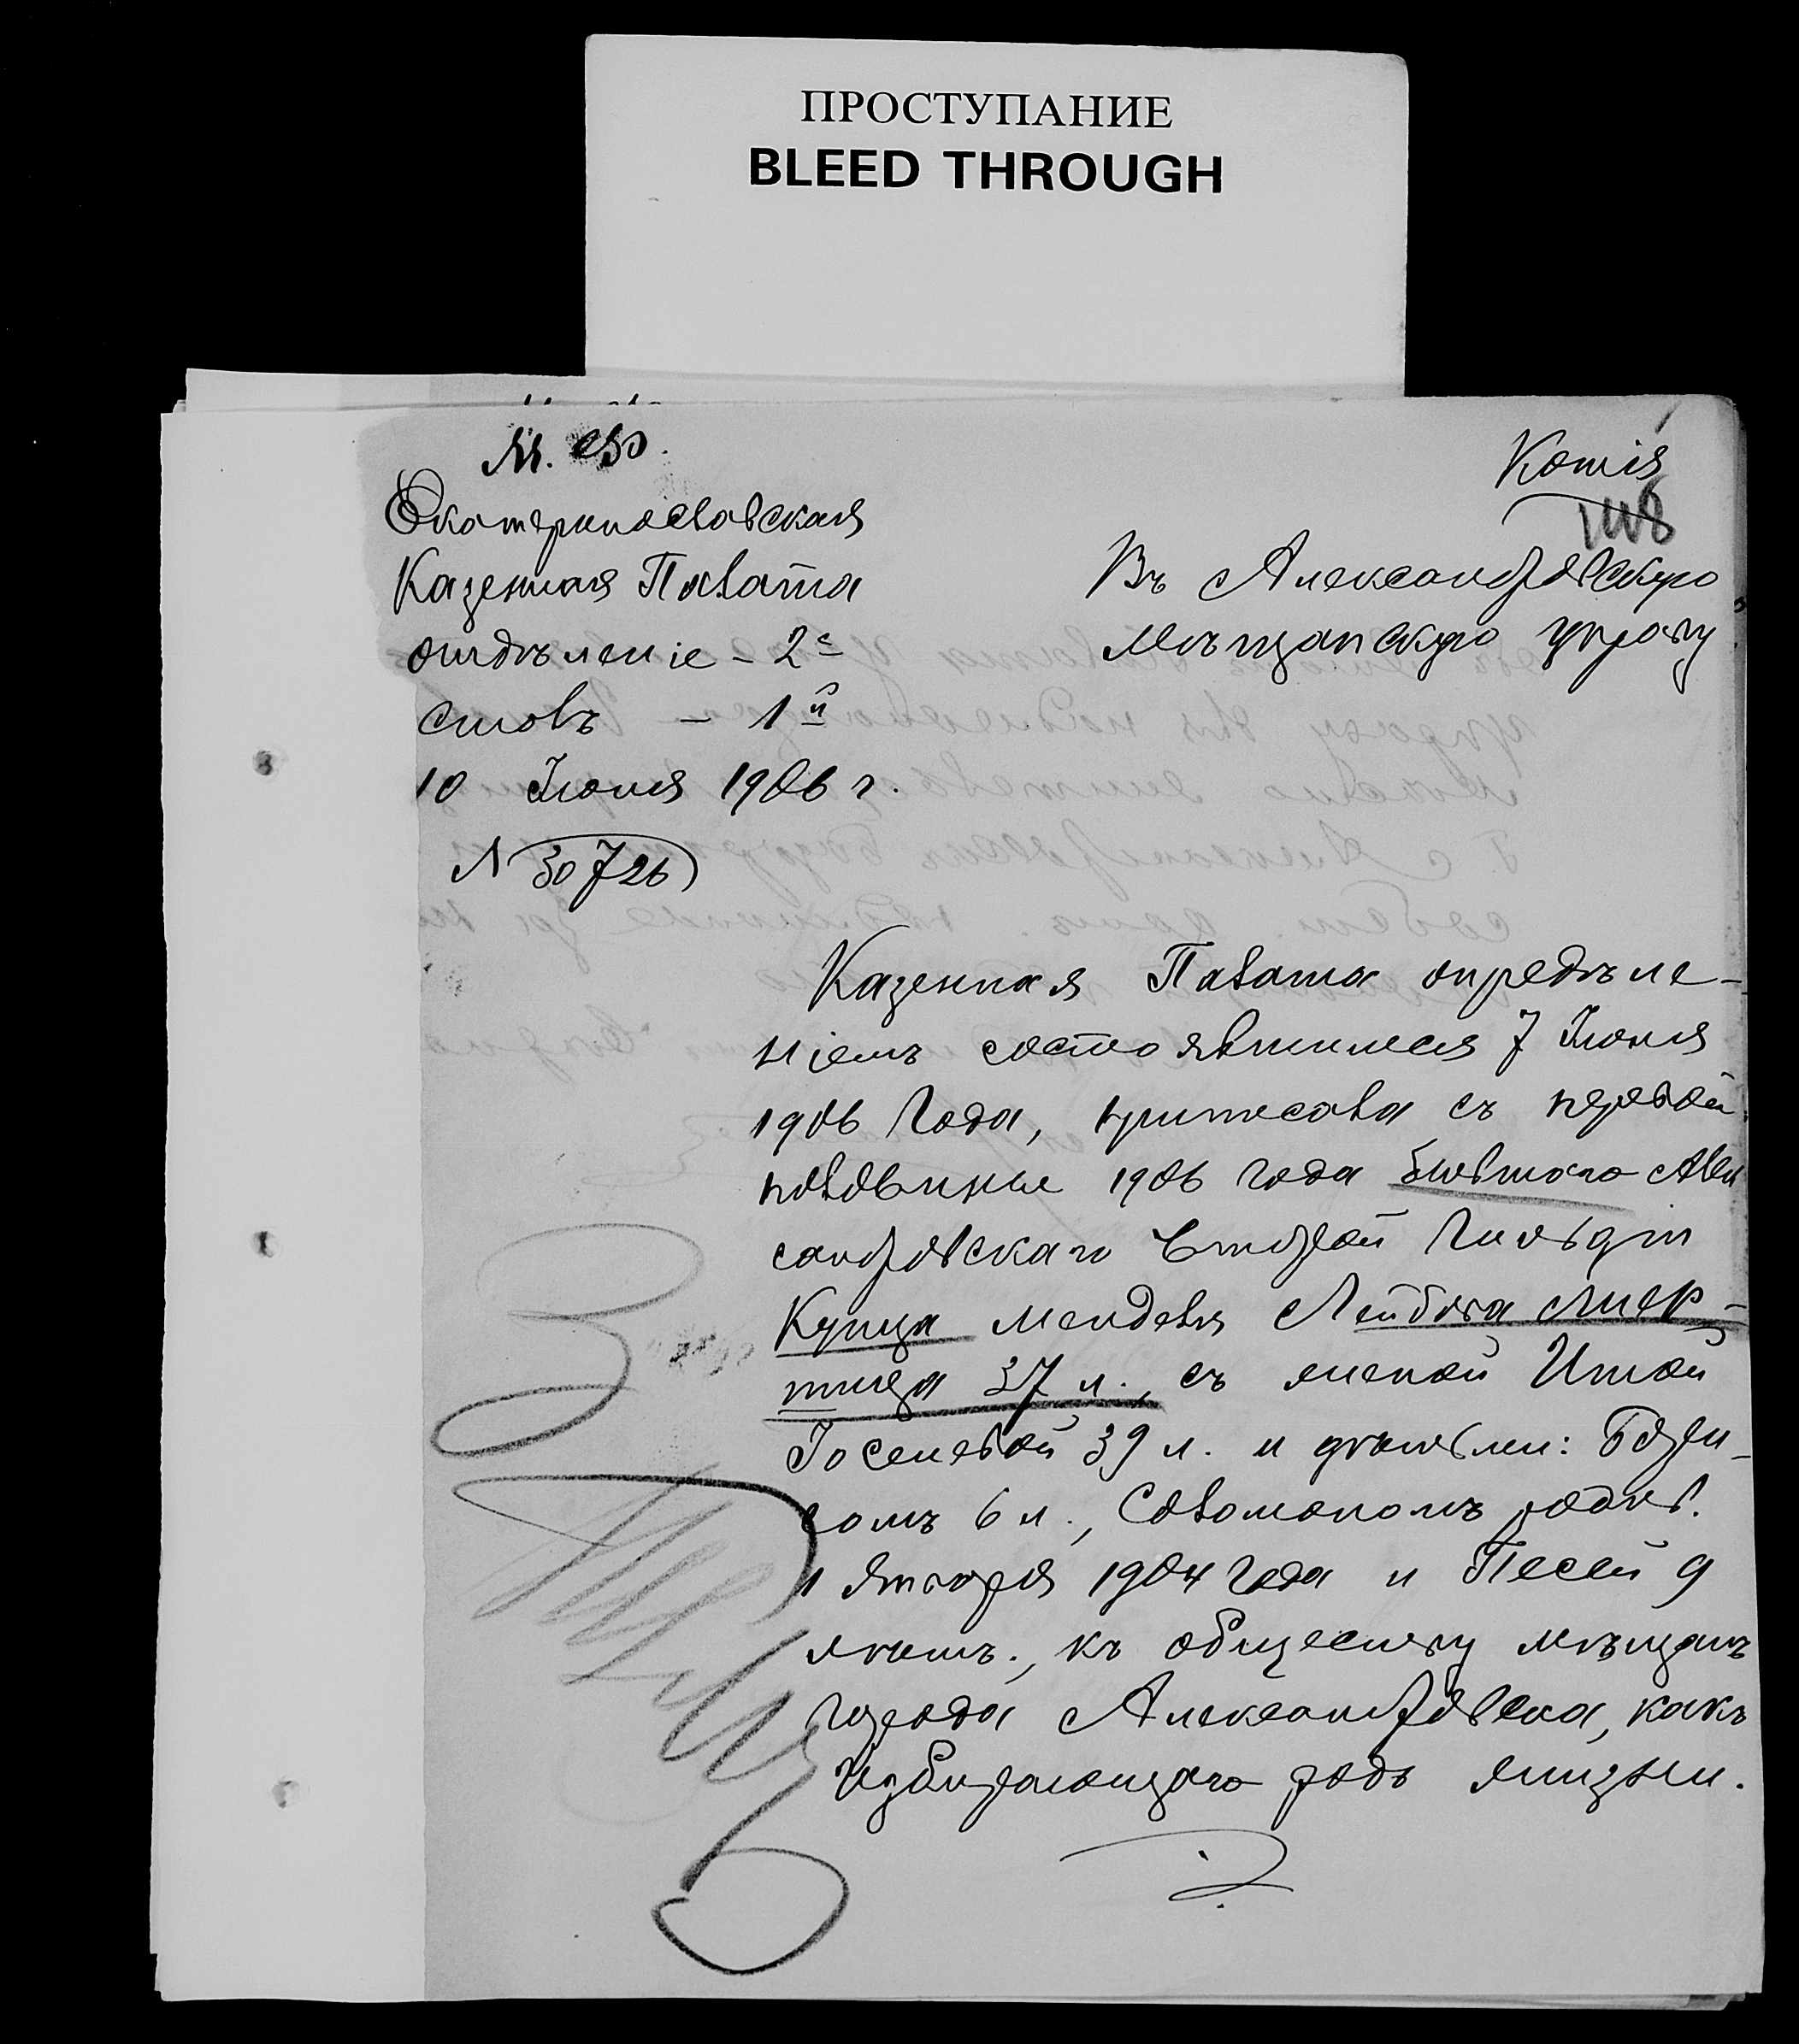 ПРОСТУПАНИЕ
BLEED THROUGH
М. Ф.
Копія
148
Екатеринославская
Казенная Палата
отдѣленіе - 2е
столъ - 1й
10 Іюня 1906 г.
N 30726
Въ Александровскую
мѣщанскую управу
Казенная Палата опредѣле-
ніемъ состоявшимся 7 Іюня
1906 года, причислила съ первой
половины 1906 года бывшаго Алек
сандровскаго второй гильдіи
Купца Менделя Лейбова
37 л., съ женой Итой
Іоселевой 39 л. и дѣтьми:
6 л., Соломономъ родив.
1 Января 1904 года и Песей 9
лѣтъ., къ обществу мѣщанъ
города Александровска, какъ
избирающаго родъ жизни.